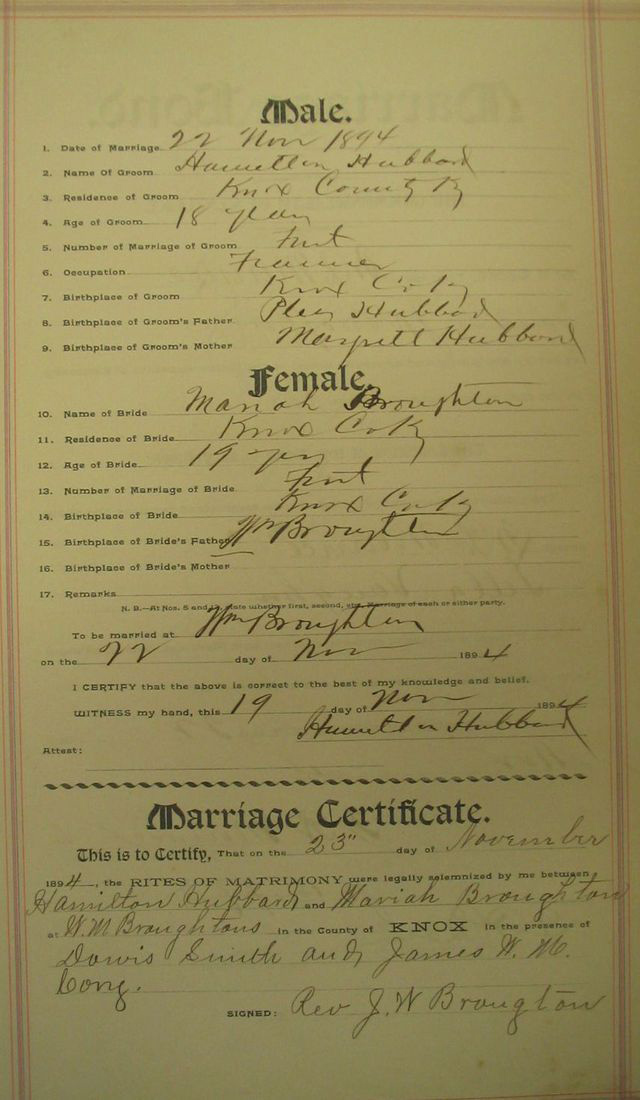 Male.
1. Date of Marriage 22 Nov 1894
2. Name Of Groom Hamilton Hubbard
3. Residence of Groom Knox County Ky
4. Age of Groom 18 years
5. Number of Marriage of Groom First
6. Occupation Farmer
7. Birthplace of Groom Knox Co Ky
8. Birthplace of Groom's Father Pley Hubbard
9. Birthplace of Groom's Mother Hubbard
Female.
10. Name of Bride Mariah Broughton
11. Residence of Bride Knox Co Ky
12. Age of Bride 19 yrs
13. Number of Marriage of Bride First
14. Birthplace of Bride Knox Co Ky
15. Birthplace of Bride's Father Wm Broughton
16. Birthplace of Bride's Mother
17. Remarks
N. B.—At Nos. 5 and 13, state whether first, second, etc. Marriage of each or either party.
To be married at Wm Broughton
on the 22 day of Nov 1894
I CERTIFY that the above is correct to the best of my knowledge and belief.
WITNESS my hand, this 19 day of Nov 1894
Hamilton Hubbard
Attest:
Marriage Certificate.
This is to Certify, That on the 23" day of November
1894, the RITES OF MATRIMONY were legally solemnized by me between
Hamilton Hubbard and Mariah Broughton
at W. M Broughtons in the County of KNOX in the presence of
Smith and James W. Mc
SIGNED: Rev J. W Brougton